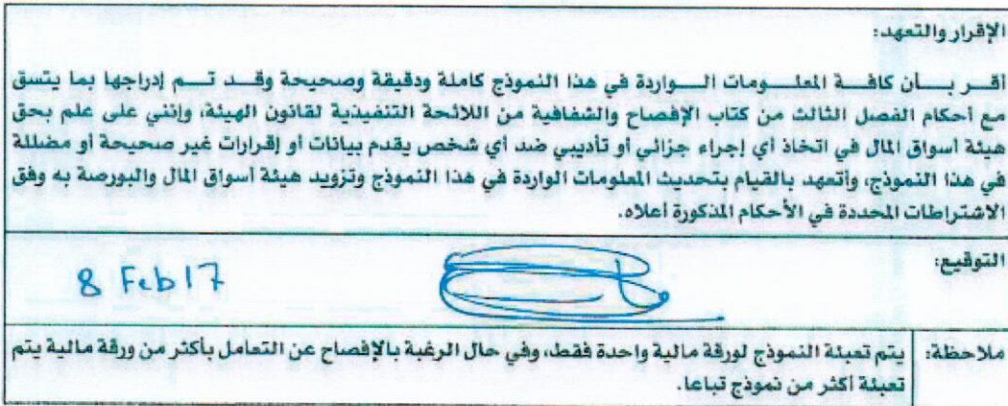 الإقرار والتعهد:
أقر بأن كافة المعلومات الواردة في هذا النموذج كاملة ودقيقة وصحيحة وقد تم إدراجها بما يتسق
مع أحكام الفصل الثالث من كتاب الإفصاح والشفافية من اللائحة التنفيذية لقانون الهيئة، وإنني على علم بحق
هيئة أسواق المال في اتخاذ أي إجراء جزائي أو تأديبي ضد أي شخص يقدم بيانات أو إقرارات غير صحيحة أو مضللة
في هذا النموذج، وأتعهد بالقيام بتحديث المعلومات الواردة في هذا النموذج وتزويد هيئة أسواق المال والبورصة به وفق
الاشتراطات المحددة في الأحكام المذكورة أعلاه.
التوقيع:
8 Feb 17
ملاحظة: يتم تعبئة النموذج لورقة مالية واحدة فقط، وفي حال الرغبة بالإفصاح عن التعامل بأكثر من ورقة مالية يتم
تعبئة أكثر من نموذج تباعا.